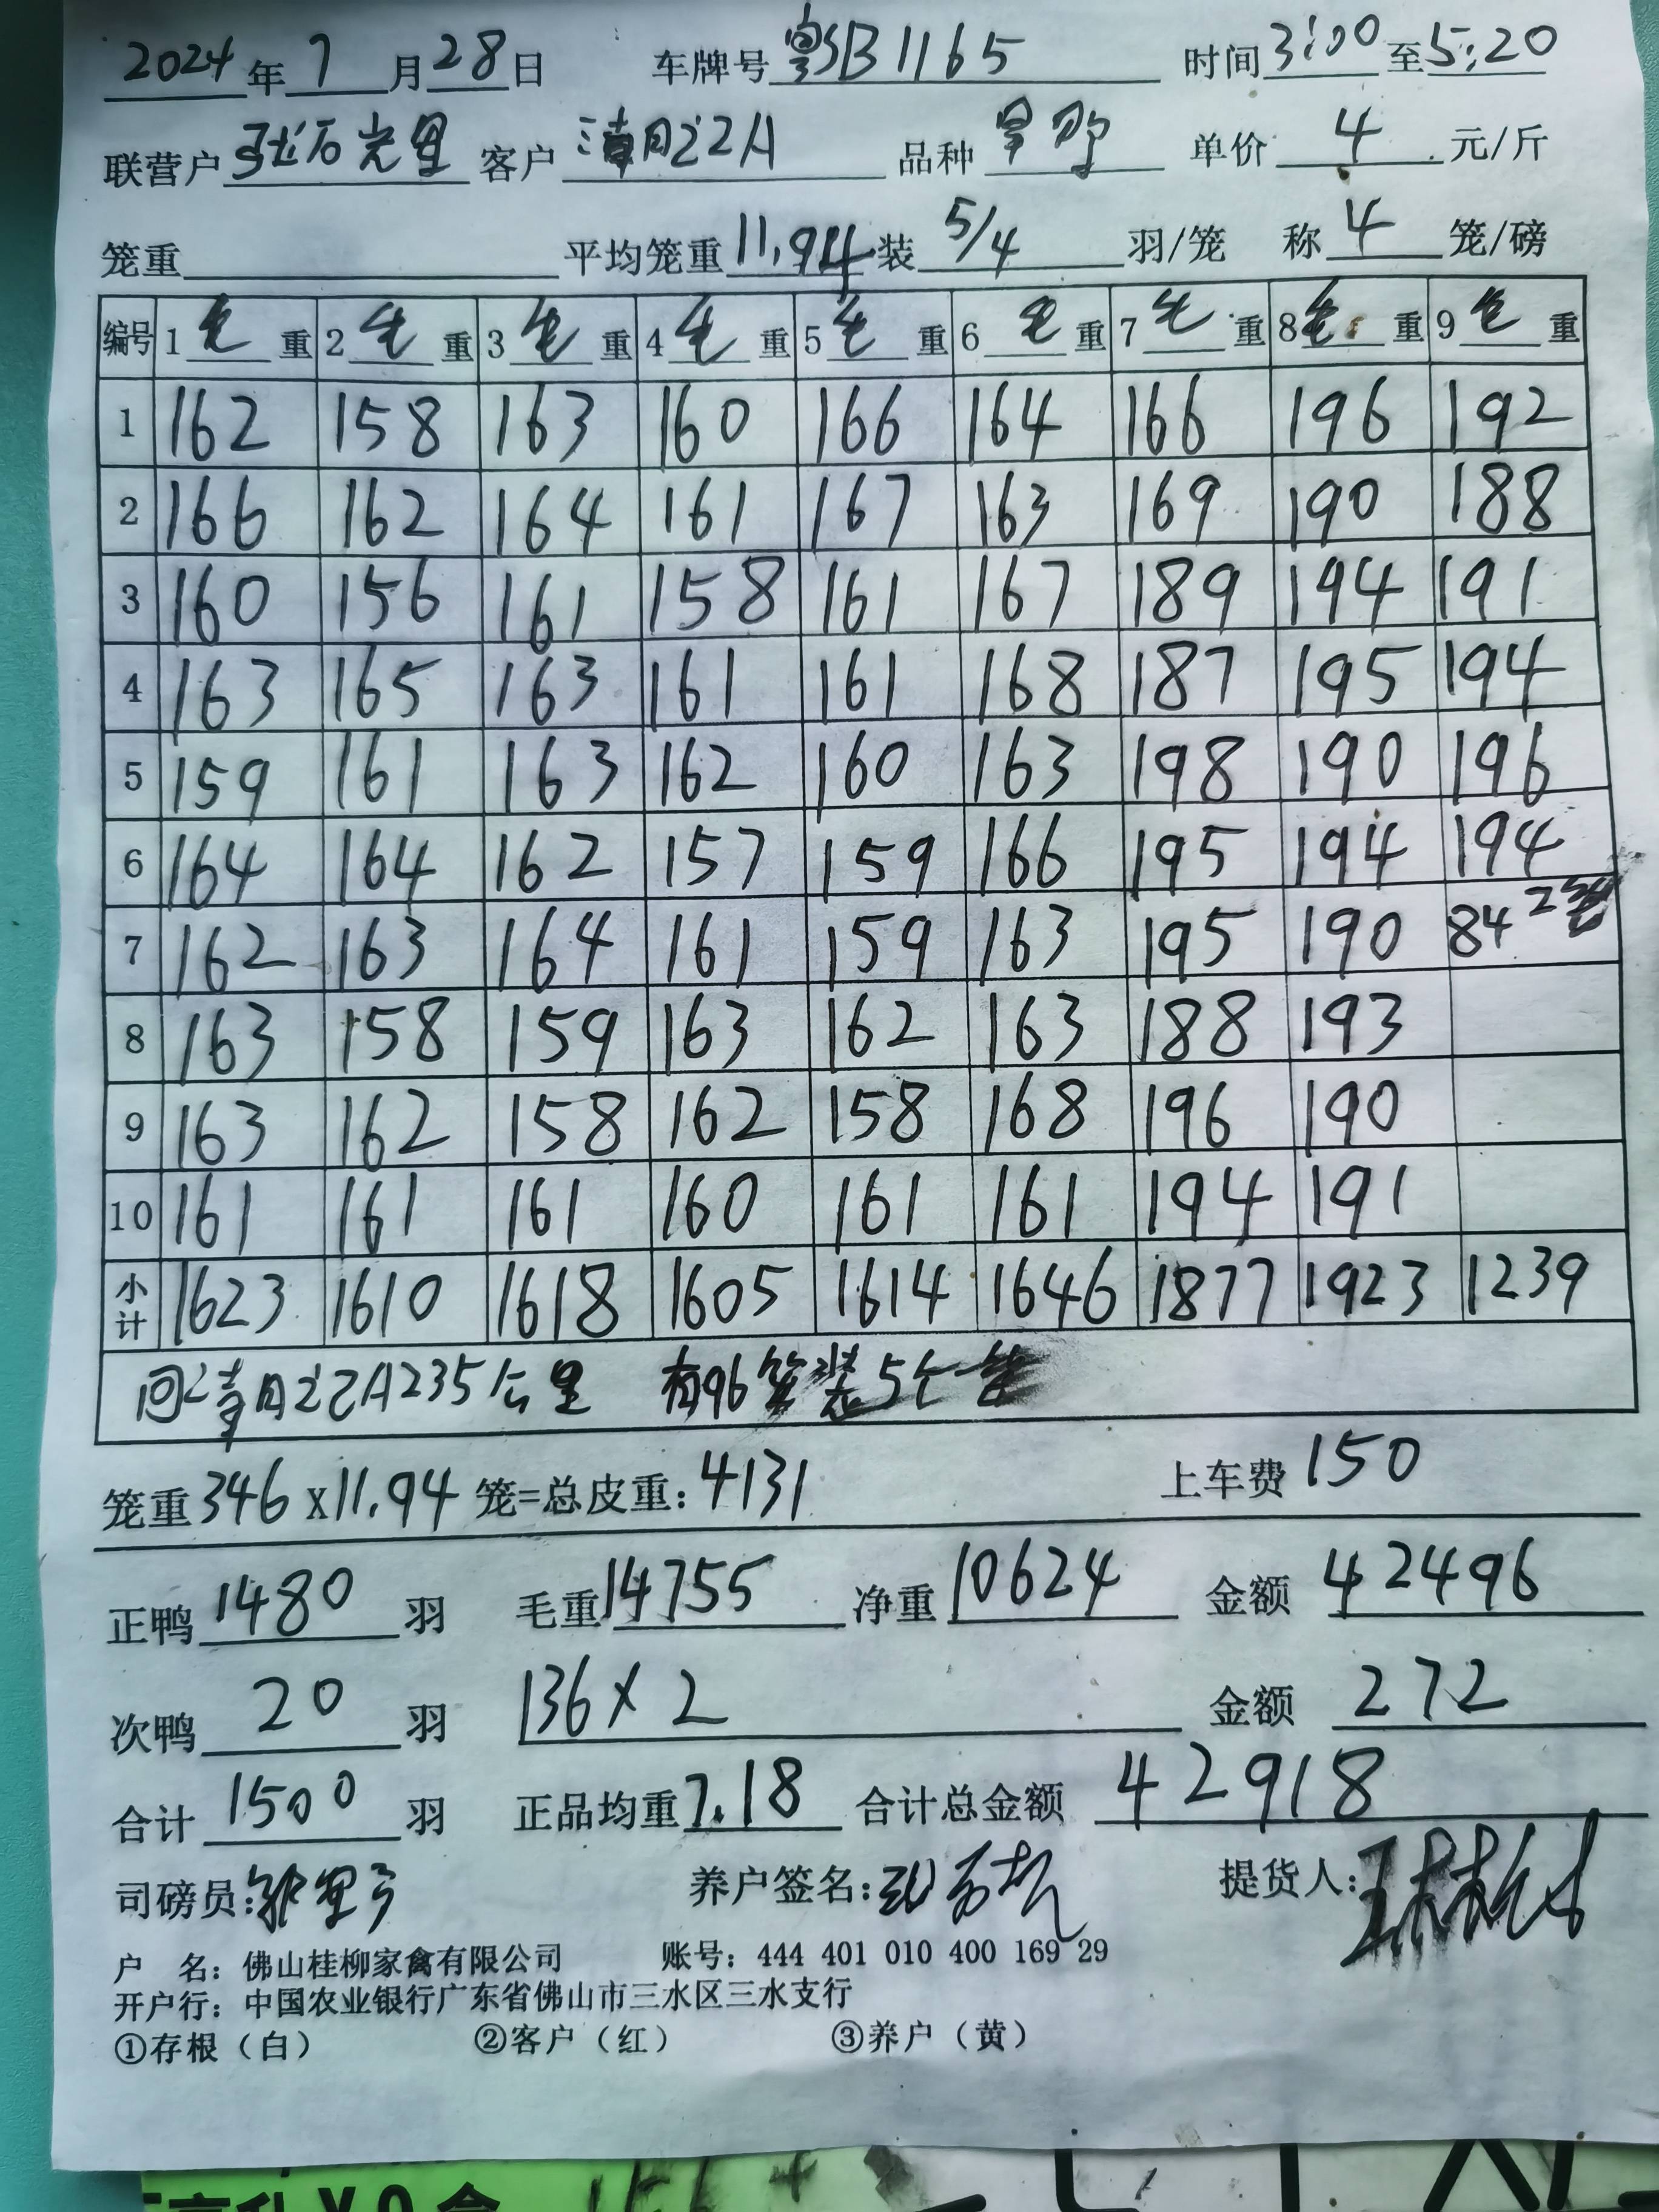 2024年7月28日 车牌号粤SB1165 时间3:00至5:20
联营户 客户 清远 A 品种 单价4元/斤
笼重 平均笼重11.94装5/4羽/笼 称4笼/磅
编号 1毛重 2毛重 3毛重 4毛重 5毛重 6毛重 7毛重 8毛重 9毛重
1 162 158 163 160 166 164 166 196 192
2 166 162 164 161 167 163 169 190 188
3 160 156 161 158 161 167 189 194 191
4 163 165 163 161 161 168 187 195 194
5 159 161 163 162 160 163 198 190 196
6 164 164 162 157 159 166 195 194 194
7 162 163 164 161 159 163 195 190 84 2笼
8 163 158 159 163 162 163 188 193
9 163 162 158 162 158 168 196 190
10 161 161 161 160 161 161 194 191
小计 1623 1610 1618 1605 1614 1646 1877 1923 1239
回清远 A235公里 有96笼装5个
笼重346x11.94笼=总皮重:4131 上车费150
正鸭1480羽 毛重14755 净重10624 金额42496
次鸭20羽 136x2 金额272
合计1500羽 正品均重7.18 合计总金额42918
司磅员: 养户签名: 提货人:
户 名:佛山桂柳家禽有限公司 账号:444 401 010 400 169 29
开户行:中国农业银行广东省佛山市三水区三水支行
①存根(白) ②客户(红) ③养户(黄)